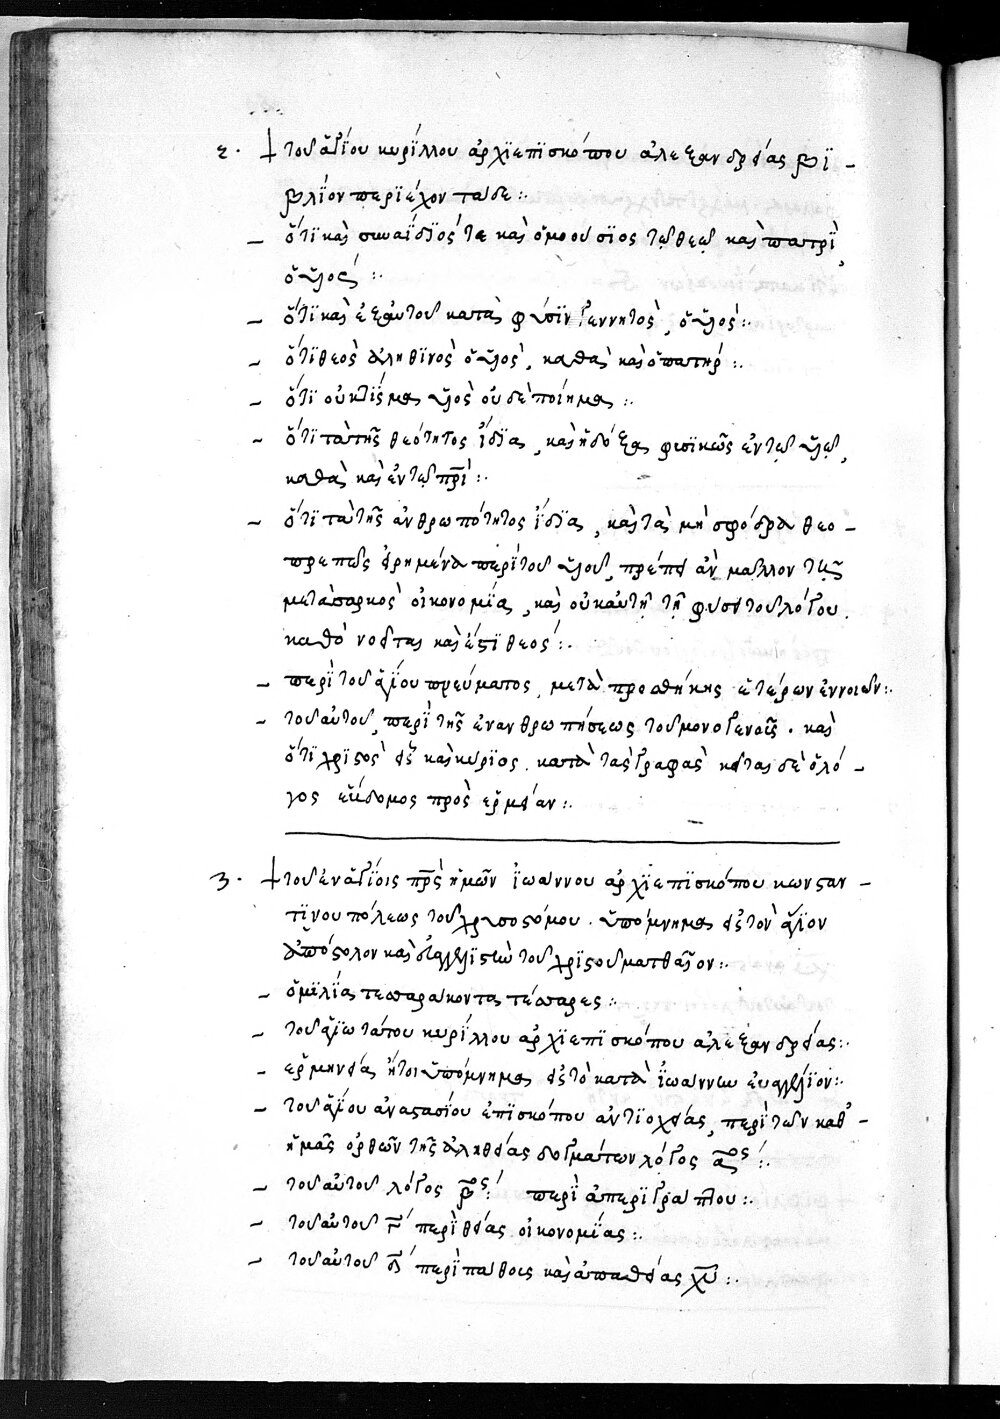 2. † τοῦ ἁγίου κυρίλλου ἀρχϊεπϊσκόπου ἀλεξανδρείας βϊ -
βλίον περϊέχον τάδε :·
– ὅτϊ καὶ συναΐδϊός τε καὶ ὁμοούσϊος τῷ θεῷ καὶ πατρὶ,
ὁ υἱός :·
– ὅτϊ καὶ ἐξ αὐτοῦ κατὰ φύσϊν γεννητὸς, ὁ υἱὸς :·
– ὅτϊ θεὸς ἀληθϊνὸς ὁ υἱὸς, καθὰ καὶ ὁ πατὴρ :·
– ὅτϊ οὐ κτίσμα υἱὸς οὐδὲ ποίημα :·
– ὅτϊ τὰ τῆς θεότητος ἴδϊα, καὶ ἡ δόξα φυσϊκῶς ἐν τῷ υἱῷ,
καθὰ καὶ ἐν τῷ π̅ρ̅ὶ :·
– ὅτϊ τὰ τῆς ἀνθρωπότητος ἴδϊα, καὶ τὰ μὴ σφόδρα θεο -
πρεπῶς εἰρημένα περὶ τοῦ υἱοῦ, πρέποι ἂν μᾶλλον τῇ
μετὰ σαρκὸς οἰκονομίᾳ, καὶ οὐκ αὐτῇ τῇ φύσει τοῦ λόγου.
καθὸ νοεῖται καὶ ἐστϊ θεός :·
– περὶ τοῦ ἁγίου πνεύματος, μετὰ προσθήκης ἑτέρων ἐννοιῶν :·
– τοῦ αὐτοῦ, περὶ τῆς ἐνανθρωπήσεως τοῦ μονογενοῦς. καὶ
ὅτϊ χρϊστὸς εἷς καὶ κύρϊος. κατὰ τὰς γραφὰς κεῖται δὲ ὁ λό -
γος ἕβδομος πρὸς ἑρμείαν :·
3. † τοῦ ἐν ἁγίοις π̅ρ̅ς ἡμῶν ἰωάννου ἀρχϊεπϊσκόπου κωνσταν -
τϊνουπόλεως τοῦ χρυσοστόμου. ὑπόμνημα εἰς τὸν ἅγϊον
ἀπόστολον καὶ εὐαγγελϊστὴν τοῦ χρϊστοῦ ματθαῖον :·
– ὁμϊλίαι τεσσαράκοντα τέσσαρες :·
– τοῦ ἁγϊωτάτου κυρίλλου ἀρχϊεπϊσκόπου ἀλεξανδρείας :·
– ἑρμηνεία ἤτοι ὑπόμνημα εἰς τὸ κατὰ ἰωάννην εὐαγγέλϊον :·
– τοῦ ἁγίου ἀναστασίου ἐπϊσκόπου ἀντϊοχείας, περὶ τῶν καθ' -
ἡμᾶς ὀρθῶν τῆς ἀληθείας δογμάτων λόγος α̅ος :·
– τοῦ αὐτοῦ λόγος β̅ος :· περὶ ἀπερϊγράπτου :·
– τοῦ αὐτοῦ γ̅ περὶ θείας οἰκονομίας :·
– τοῦ αὐτοῦ δ̅ περὶ πάθους καὶ ἀπαθείας χ̅υ̅ :·